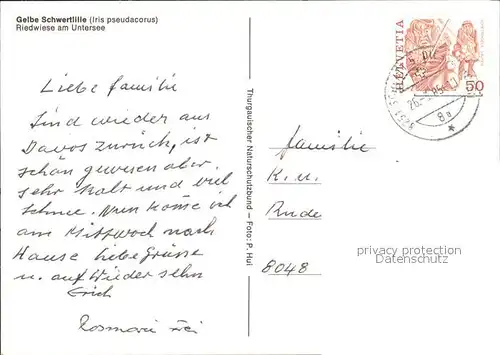 Gelbe Schwertlilie (Iris pseudacorus)
Riedwiese am Untersee
Liebe familie
Sind wieder aus
Davos zurück, ist
schön gewesen aber
sehr kalt und viel
schnee. Nun kome ich
am Mittwoch nach
Hause liebe Grüsse
u. auf Wieder sehn
Erich
Rosmarie Frei
Thurgauischer Naturschutzbund – Foto: P. Hui
HELVETIA
50
8a
familie
K. u.
8048
privacy protection
Datenschutz